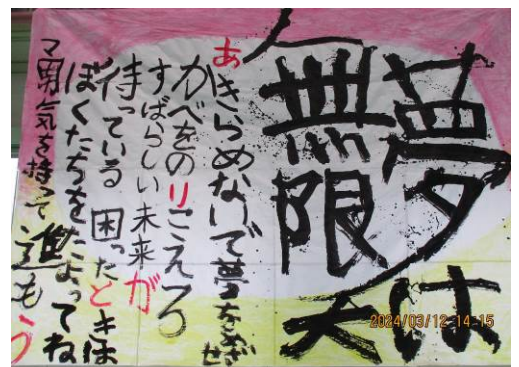 夢は
無限大
あきらめないで夢をめざせ
かべをのりこえろ
すばらしい未来が
待っている 困ったときは
ぼくたちをたよってね
勇気を持って進もう
2024/03/12 14:15